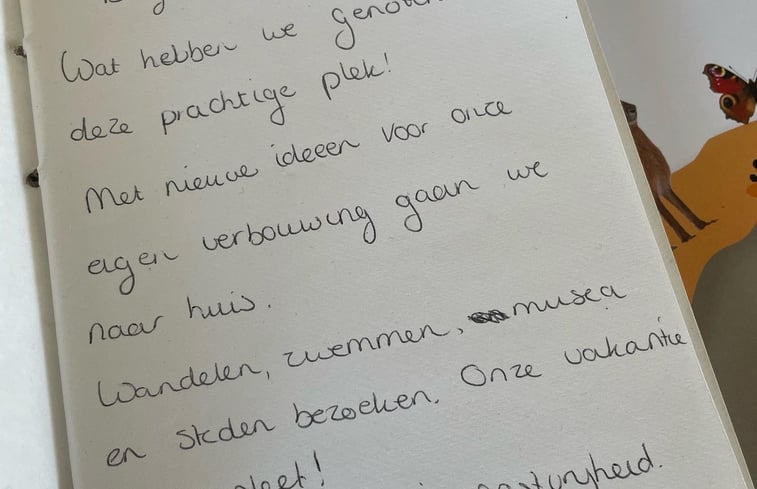 Wat hebben we
deze prachtige plek!
Met nieuwe ideeën voor onze
eigen verbouwing gaan we
naar huis.
Wandelen, zwemmen, musea
en steden bezoeken. Onze vakantie